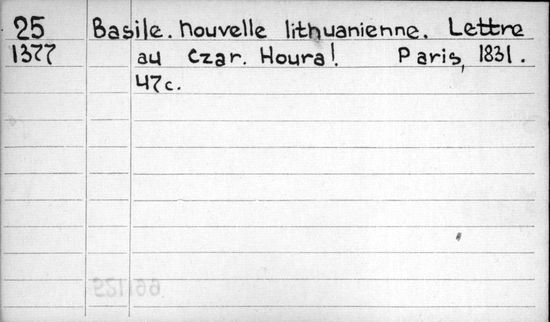 25 Basile. nouvelle lithuanienne. Lettre
1377 au Czar. Houra! Paris, 1831.
47c.